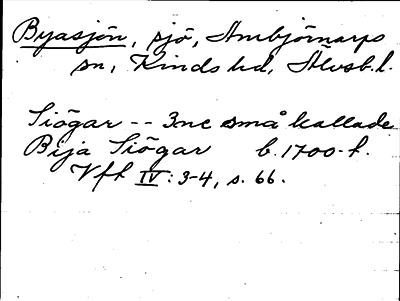 Byasjön, sjö, Ambjörnarps
sn, Kinds hd, Älvsb.l.
Siögar -- 3ne små kallade
Bija Siögar b. 1700-t.
Vft IV: 3-4, s. 66.